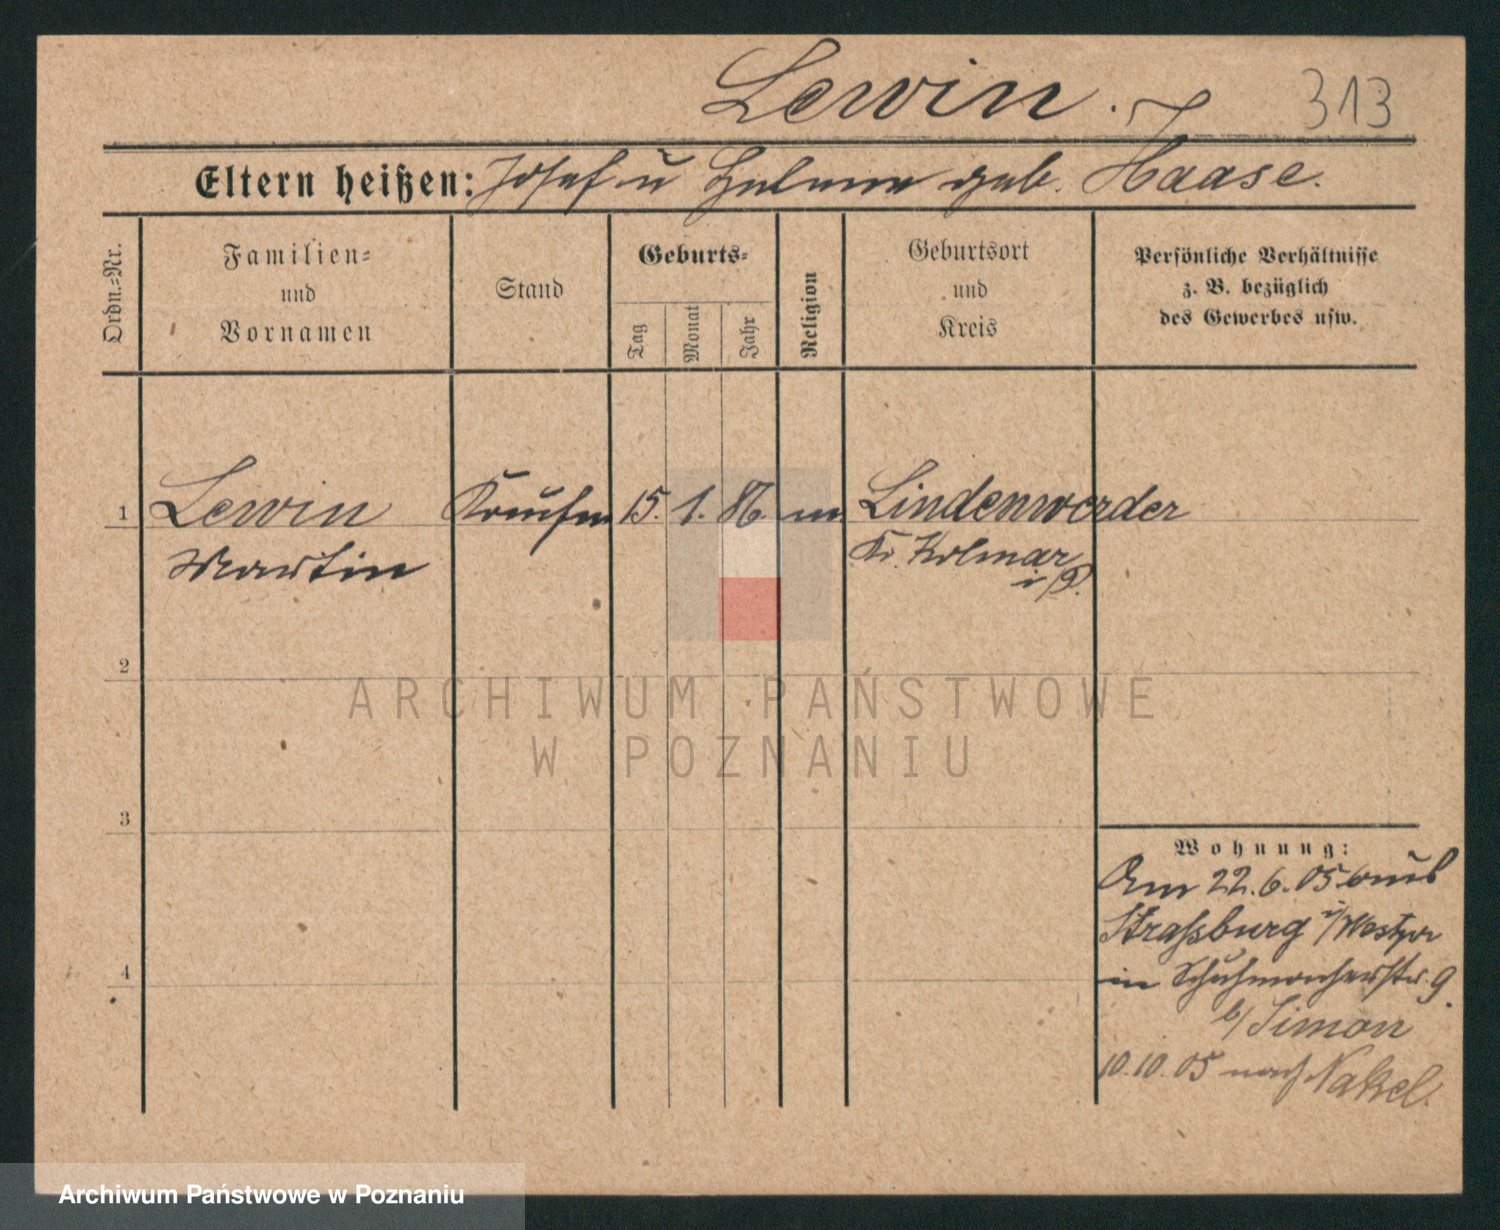 Lewin. 313
Eltern heißen: Josef u Helene geb. Haase.
Ordn.=Nr.
Familien=
und
Vornamen
Stand
Geburts=
Tag
Monat
Jahr
Religion
Geburtsort
und
Kreis
Persönliche Verhältnisse
z. B. bezüglich
des Gewerbes usw.
1 Lewin Kaufm 15. 1. 86 m Lindenwerder
Martin Kr. Kolmar
i/P.
2
ARCHIWUM PAŃSTWOWE
W POZNANIU
3
Wohnung:
Am 22.6.05 aus
Straßburg i/Westpr
in Schuhmacherstr. 9
b/ Simon
4
10.10.05 nach Nakel.
Archiwum Państwowe w Poznaniu